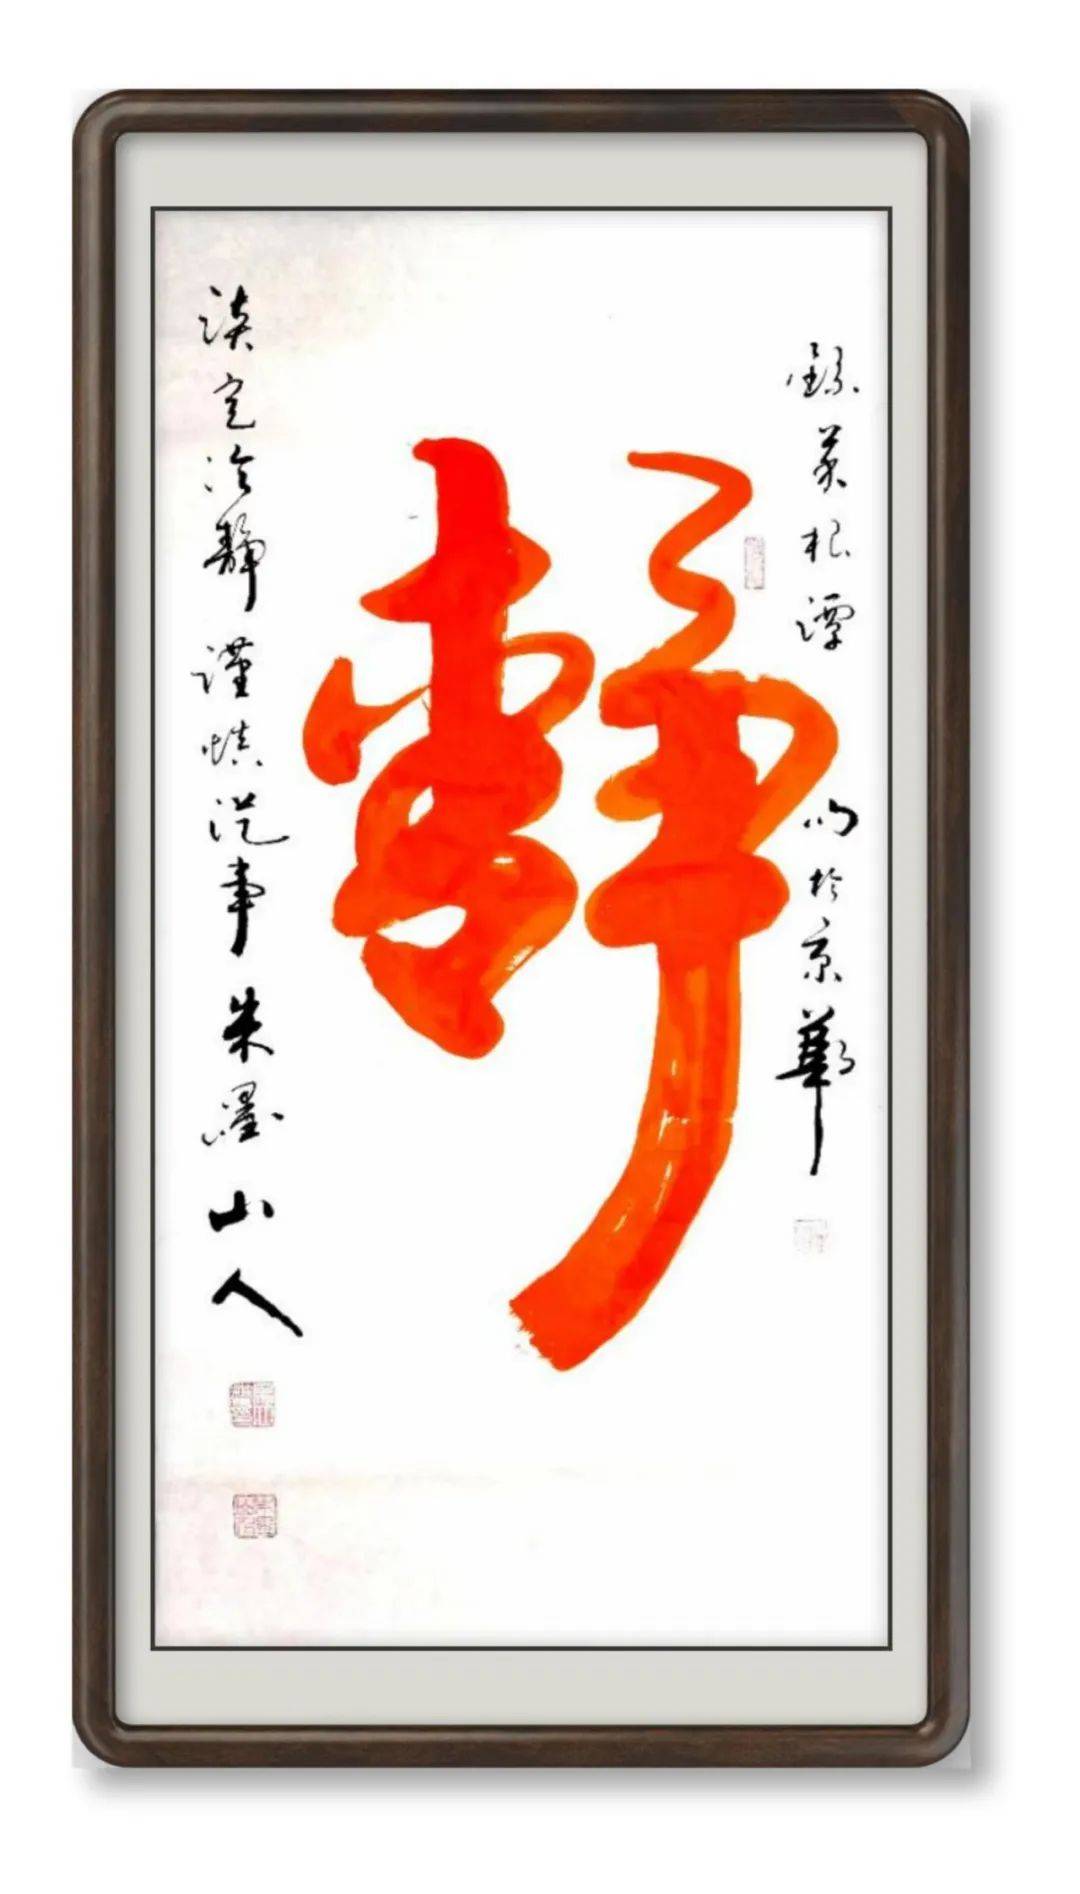 錄菜根譚
於京華
靜
淡定冷靜謹慎從事朱墨山人